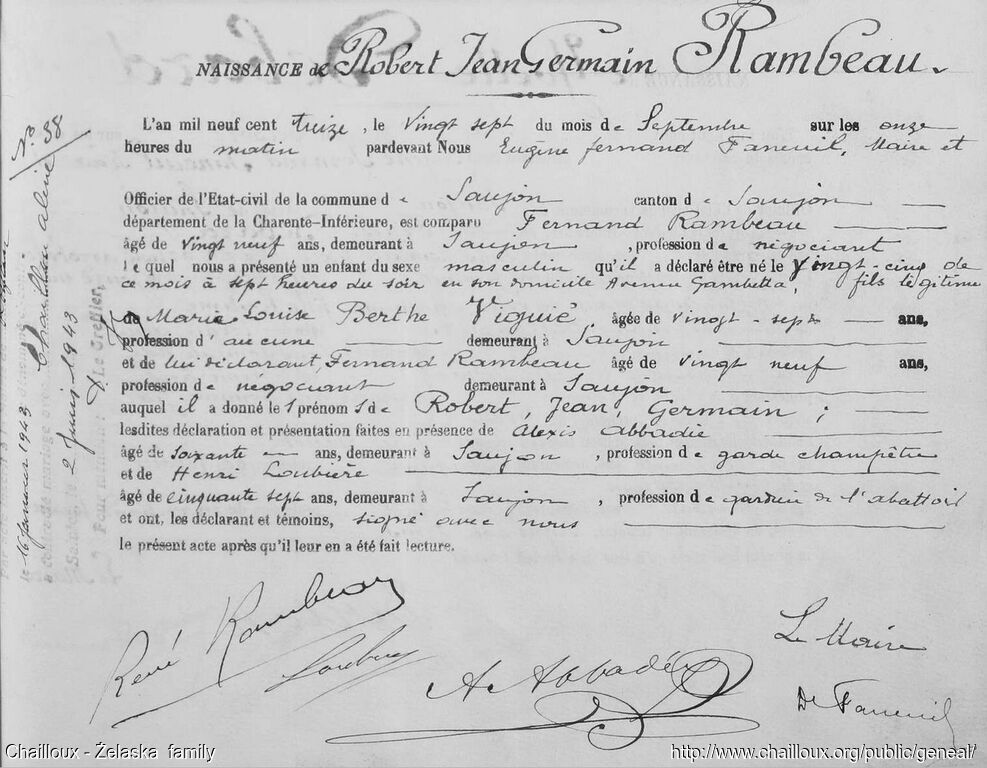 NAISSANCE de Robert Jean Germain Rambeau.
L'an mil neuf cent treize, le vingt sept du mois de Septembre sur les onze
heures du matin pardevant Nous Eugène Fernand Faneuil, Maire et
Officier de l'Etat-civil de la commune de Saujon canton de Saujon
département de la Charente-Inférieure, est comparu Fernand Rambeau
âgé de vingt neuf ans, demeurant à Saujon, profession de négociant
lequel nous a présenté un enfant du sexe masculin qu'il a déclaré être né le vingt-cinq de
ce mois à sept heures du soir en son domicile Avenue Gambetta, fils légitime
de Marie Louise Berthe Viguié, âgée de vingt-sept ans,
profession d'aucune demeurant à Saujon
et de lui déclarant, Fernand Rambeau âgé de vingt neuf ans,
profession de négociant demeurant à Saujon
auquel il a donné les prénoms de Robert, Jean, Germain;
lesdites déclaration et présentation faites en présence de Alexis Abbadie
âgé de soixante ans, demeurant à Saujon, profession de garde champêtre
et de Henri Loubière
âgé de cinquante sept ans, demeurant à Saujon, profession de gardien de l'abattoir
et ont, les déclarant et témoins, signé avec nous
le présent acte après qu'il leur en a été fait lecture.
René Rambeau
A Abbadie
Le Maire
Dr Faneuil
le 16 janvier 1943 Chaillou Aline
2 Juin 1943
Le Greffier
Chailloux - Želaska family
http://www.chailloux.org/public/geneal/